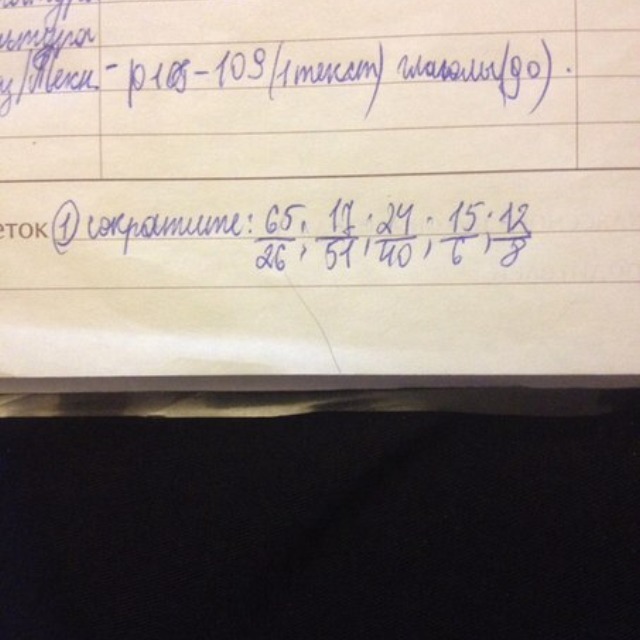 ьтура
- p 108-109 (1 текст) глаголы (до).
еток ① сократите: 65/26; 17/51; 24/40; 15/6; 12/8